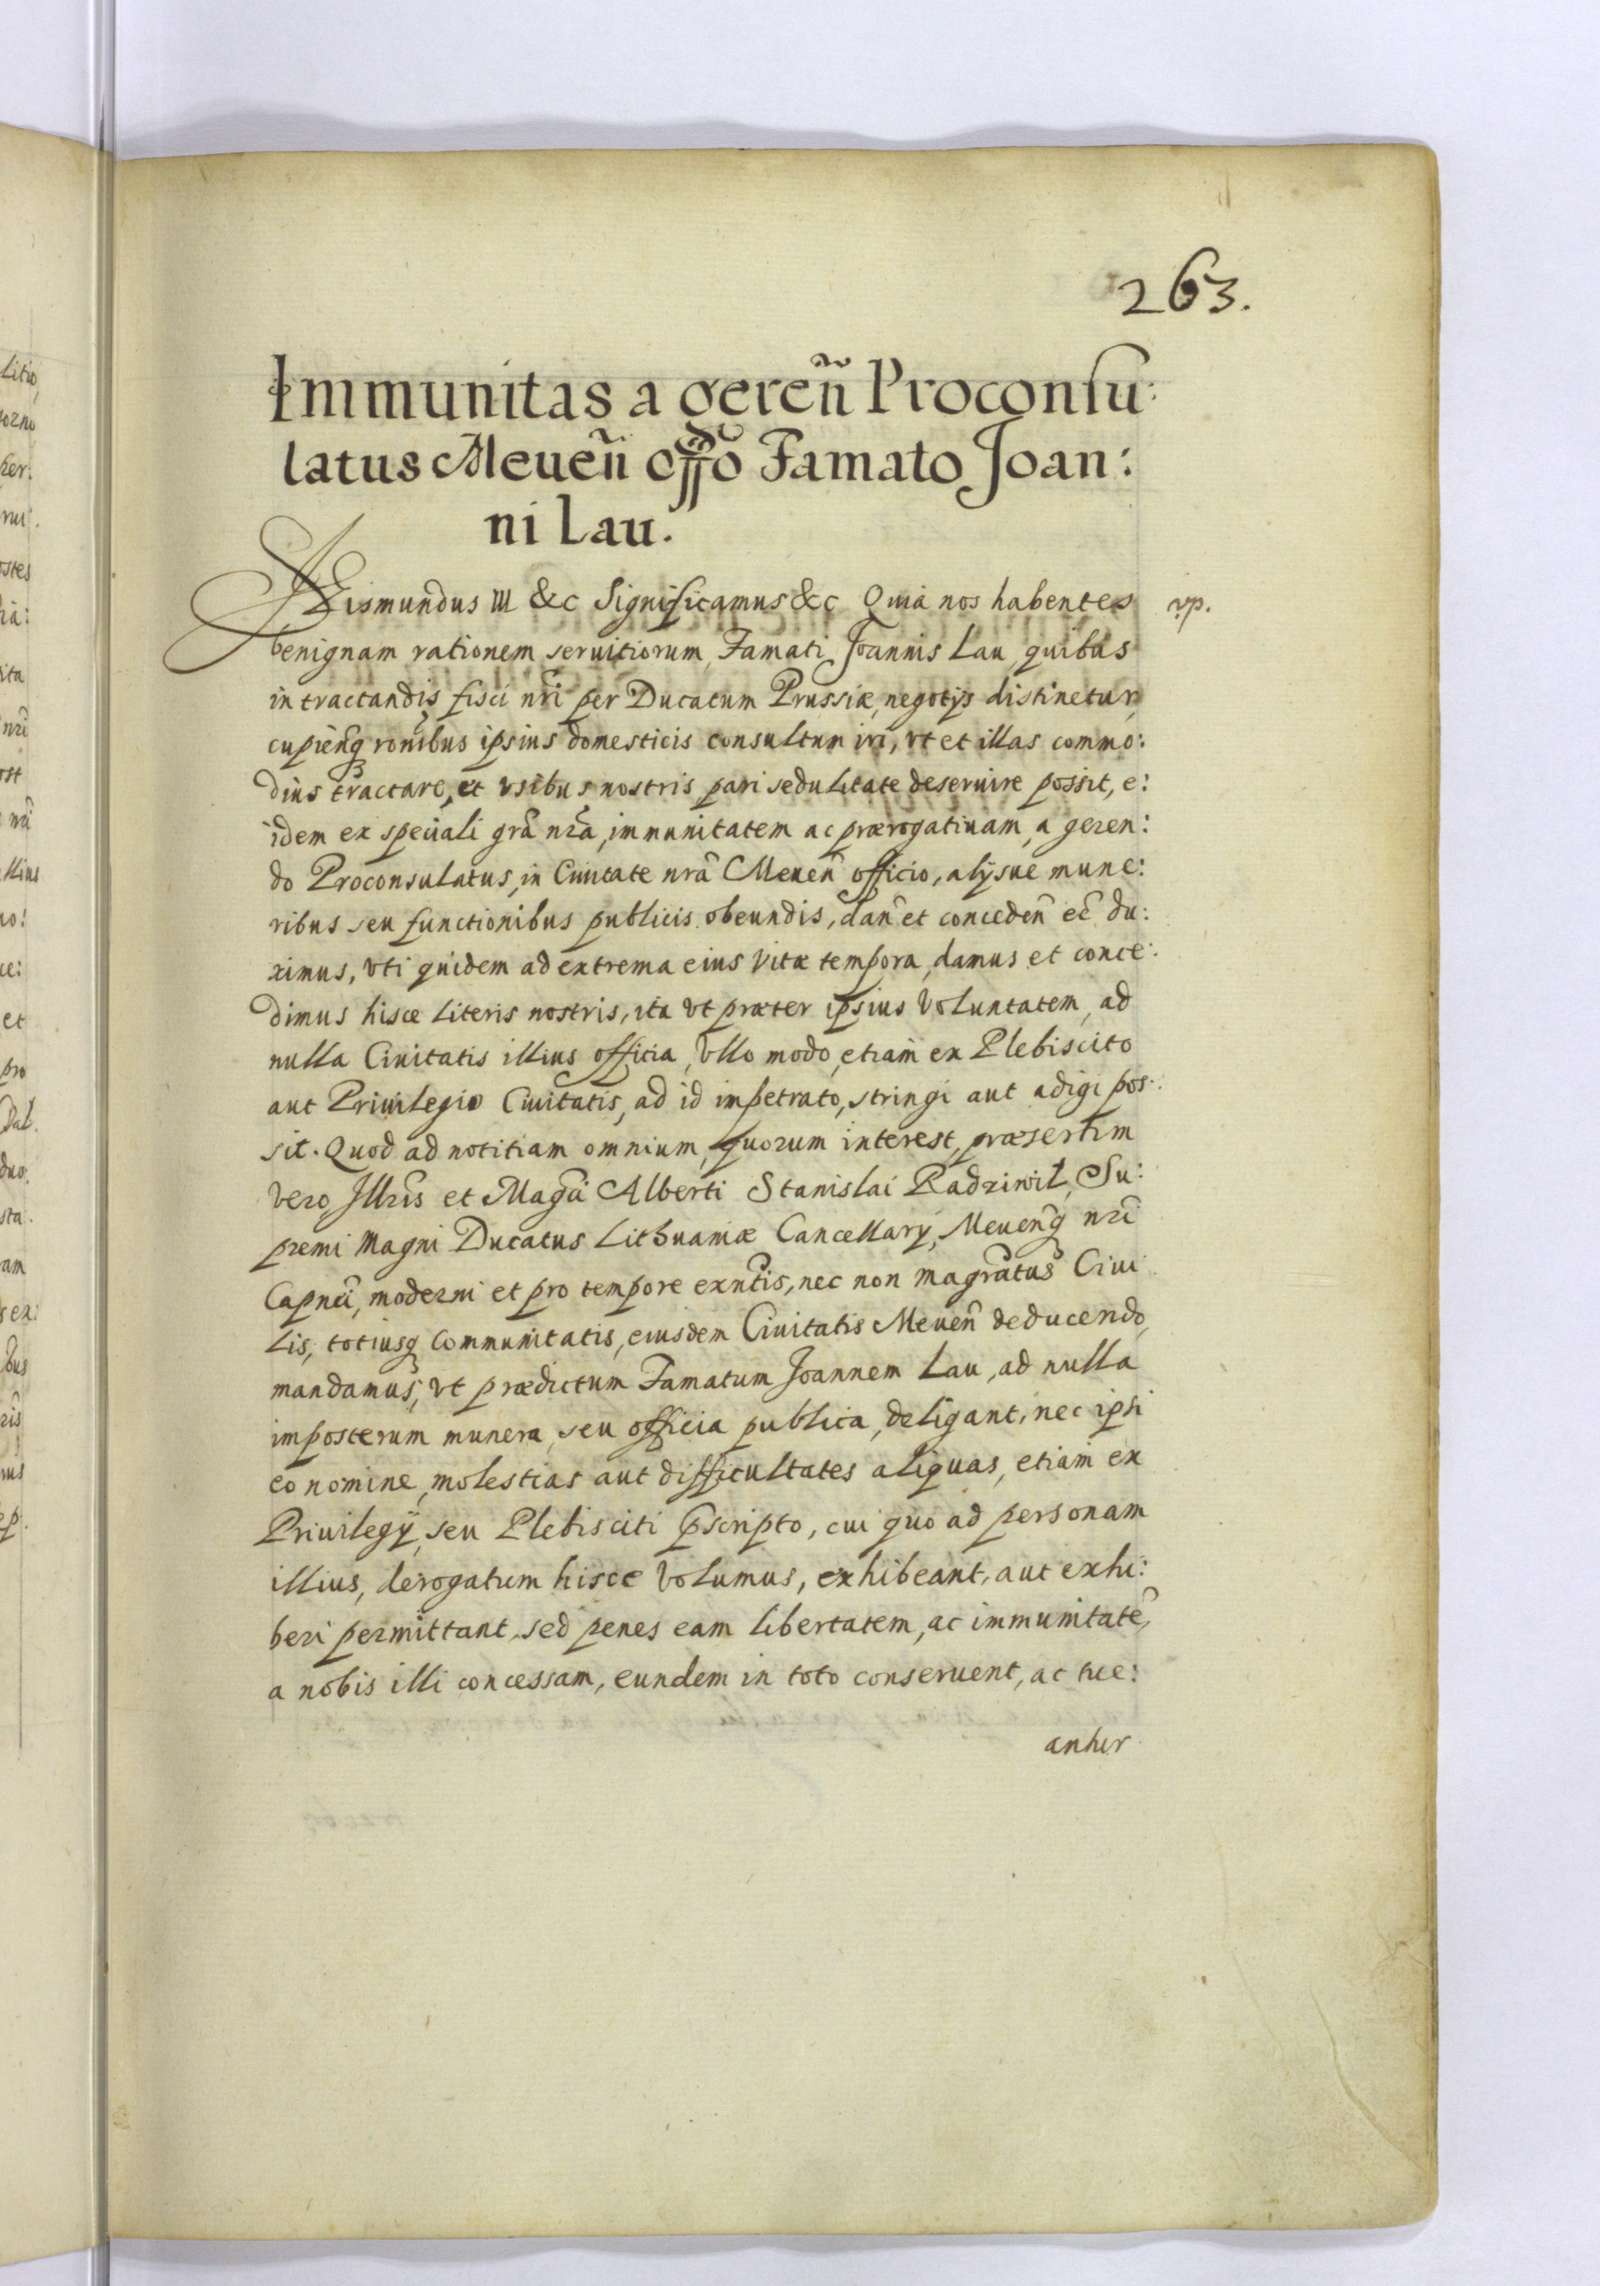 263.
Immunitas a gereñ Proconsu:
latus Meueñ offo Famato Joan:
ni Lau.
Sigismundus III &c Significamus &c Quia nos habentes
vp.
benignam rationem seruitiorum, Famati Joannis Lau, quibus
in tractandis fisci nr̃i per Ducatum Prussiæ, negotÿs distinetur,
cupieñq ronĩbus ipsius domesticis consultum iri, vt et illas commo:
dius tractare, et vsibus nostris pari sedulitate deseruire possit, e:
idem ex speciali grã nrã, immunitatem ac prærogatiuam, a geren:
do Proconsulatus, in Ciuitate nrã Meueñ officio, alÿsue mune:
ribus seu functionibus publicis obeundis, dañ et concedeñ eẽ du:
ximus, vti quidem ad extrema eius vitæ tempora, damus et conce:
dimus hisce literis nostris, ita vt præter ipsius voluntatem, ad
nulla Ciuitatis illius officia, vllo modo, etiam ex Plebiscito
aut Priuilegio Ciuitatis, ad id impetrato, stringi aut adigi pos:
sit. Quod ad notitiam omnium, quorum interest, præsertim
vero, Illr̃is et Magci Alberti Stanislai Radziwil, Su:
premi Magni Ducatus Lithuaniæ Cancellarÿ, Meueñq nr̃i
Capnei, moderni et pro tempore exñtis, nec non magrãtus Ciui
lis, totiusq Communitatis, eiusdem Ciuitatis Meueñ deducendo,
mandamus, vt prædictum Famatum Joannem Lau, ad nulla
imposterum munera, seu officia publica, deligant, nec ipsi
eo nomine, molestias aut difficultates aliquas, etiam ex
Priuilegÿ, seu Plebisciti pscripto, cui quo ad personam
illius, derogatum hisce volumus, exhibeant, aut exhi:
beri permittant, sed penes eam libertatem, ac immunitatẽ,
a nobis illi concessam, eundem in toto conseruent, ac tue:
antur